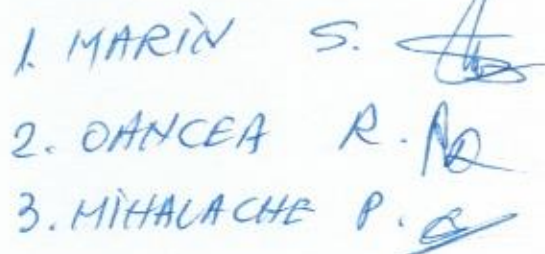 1. MARIN S.
2. OANCEA R.
3. MIHALACHE P.